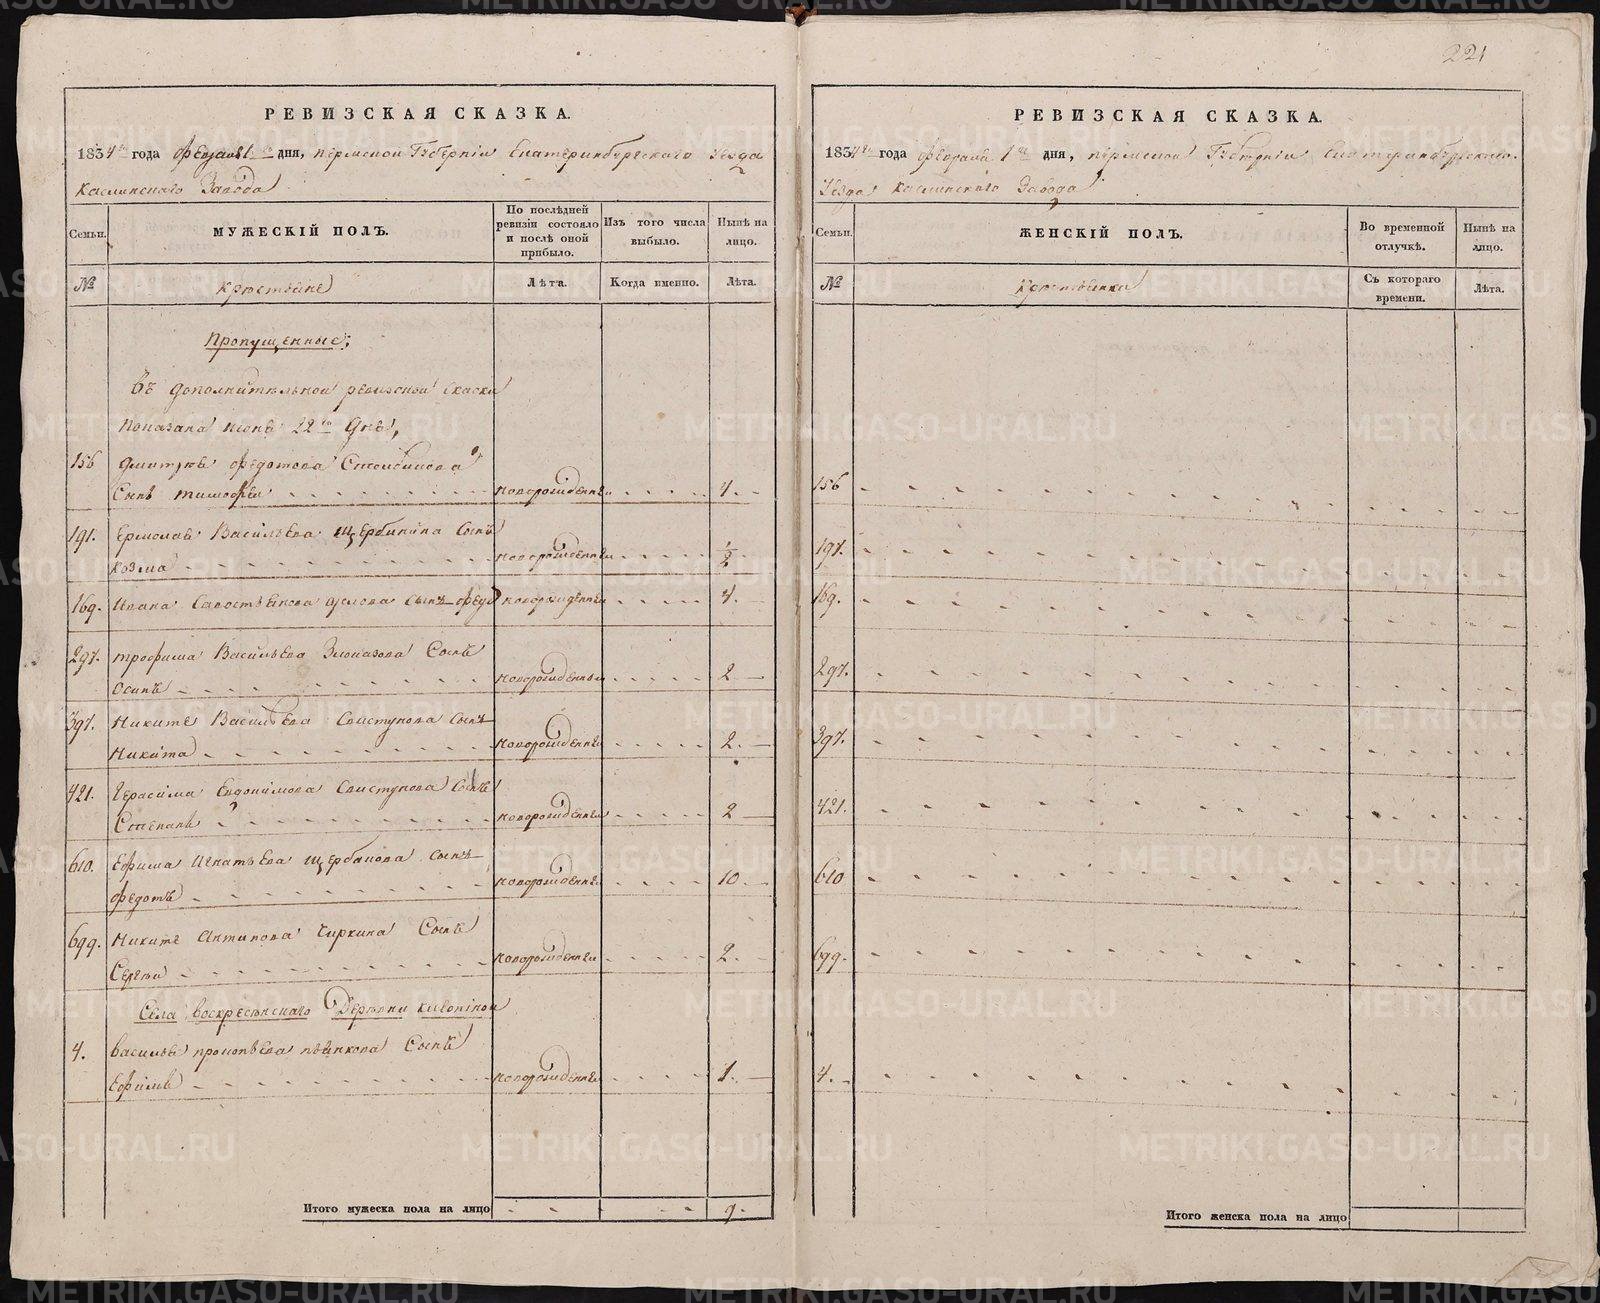 221
РЕВИЗСКАЯ СКАЗКА.
1834го года февраля 1го дня, Пермской Губерніи Екатеринбургскаго Уезда
Каслинскаго Завода
Семьи.
МУЖЕСКІЙ ПОЛЪ.
По послѣдней ревизіи состояло и послѣ оной прибыло.
Изъ того числа выбыло.
Нынѣ на лицо.
№
Крестьяне
Лѣта.
Когда именно.
Лѣта.
Пропущенные;
Въ дополнительной ревизской скаски
показана июня 22го дня,
156 Дмитрия Федотова
Сынъ Тимофей новорожденной 4.
191. Ермолая Васильева Щербинина Сынъ
Козма новорожденной 1/2
169. Ивана Савостьянова Сынъ новорожденной 4.
297. Трофима Васильева Сынъ
Осипъ новорожденной 2
397. Никиты Васильева Свистунова Сынъ
Никита новорожденной 2.
421. Герасима Евдокимова Свистунова Сынъ
Степанъ новорожденной 2
610. Ефима Игнатьева Щербакова Сынъ
Федотъ новорожденной 10.
699. Никиты Антипова Чиркина Сынъ
Сергей новорожденной 2.
Села Воскресенскаго Деревни
4. Василья Прокопьева Сынъ
Ефимъ новорожденной 1.
Итого мужеска пола на лицо 9.
РЕВИЗСКАЯ СКАЗКА.
1834го года февраля 1го дня, Пермской Губерніи Екатеринбургскаго
Уезда Каслинскаго Завода
Семьи.
ЖЕНСКІЙ ПОЛЪ.
Во временной отлучкѣ.
Нынѣ на лицо.
№
Крестьянки
Съ котораго времени.
Лѣта.
156
191.
169.
297.
397.
421.
610
699.
4.
Итого женска пола на лицо
METRIKI.GASO-URAL.RU